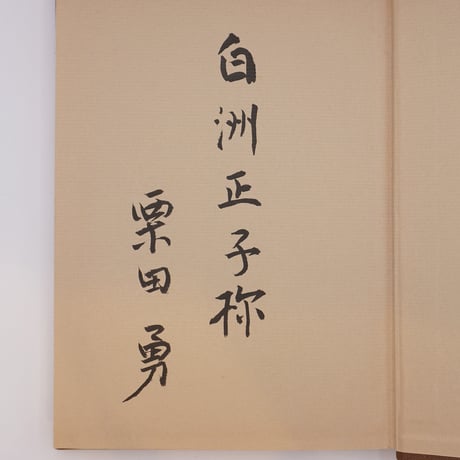 白洲正子様
栗田勇